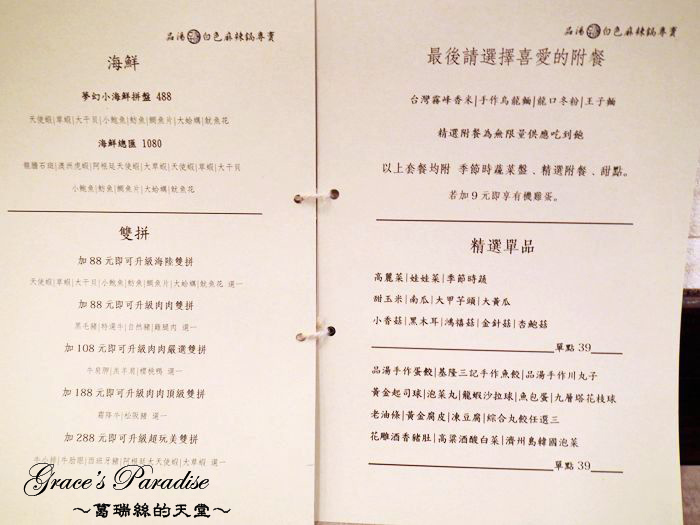 品湯 白色麻辣鍋專賣
海鮮
夢幻小海鮮拼盤 488
天使蝦|草蝦|大干貝|小鮑魚|魴魚|鯛魚片|大蛤蠣|魷魚花
海鮮總匯 1080
龍膽石斑|澳洲虎蝦|阿根廷天使蝦|大草蝦|天使蝦|草蝦|大干貝
小鮑魚|魴魚|鯛魚片|大蛤蠣|魷魚花
雙拼
加 88 元即可升級海陸雙拼
天使蝦|草蝦|大干貝|小鮑魚|魴魚|鯛魚片|大蛤蠣|魷魚花 選一
加 88 元即可升級肉肉雙拼
黑毛豬|特選牛|自然豬|雞腿肉 選一
加 108 元即可升級肉肉嚴選雙拼
牛肩胛|羔羊肩|櫻桃鴨 選一
加 188 元即可升級肉肉頂級雙拼
霜降牛|松阪豬 選一
加 288 元即可升級超玩美雙拼
牛小排|牛肋眼|西班牙豬|阿根廷大天使蝦|大草蝦 選一
品湯 白色麻辣鍋專賣
最後請選擇喜愛的附餐
台灣霧峰香米|手作烏龍麵|龍口冬粉|王子麵
精選附餐為無限量供應吃到飽
以上套餐均附 季節時蔬菜盤、精選附餐、甜點。
若加 9 元即享有機雞蛋。
精選單品
高麗菜|娃娃菜|季節時蔬
甜玉米|南瓜|大甲芋頭|大黃瓜
小香菇|黑木耳|鴻禧菇|金針菇|杏鮑菇
單點 39
品湯手作蛋餃|基隆三記手作魚餃|品湯手作川丸子
黃金起司球|泡菜丸|龍蝦沙拉球|魚包蛋|九層塔花枝球
老油條|黃金腐皮|凍豆腐|綜合丸餃任選三
花雕酒香豬肚|高粱酒酸白菜|濟州島韓國泡菜
單點 39
Grace's Paradise
～葛瑞絲的天堂～